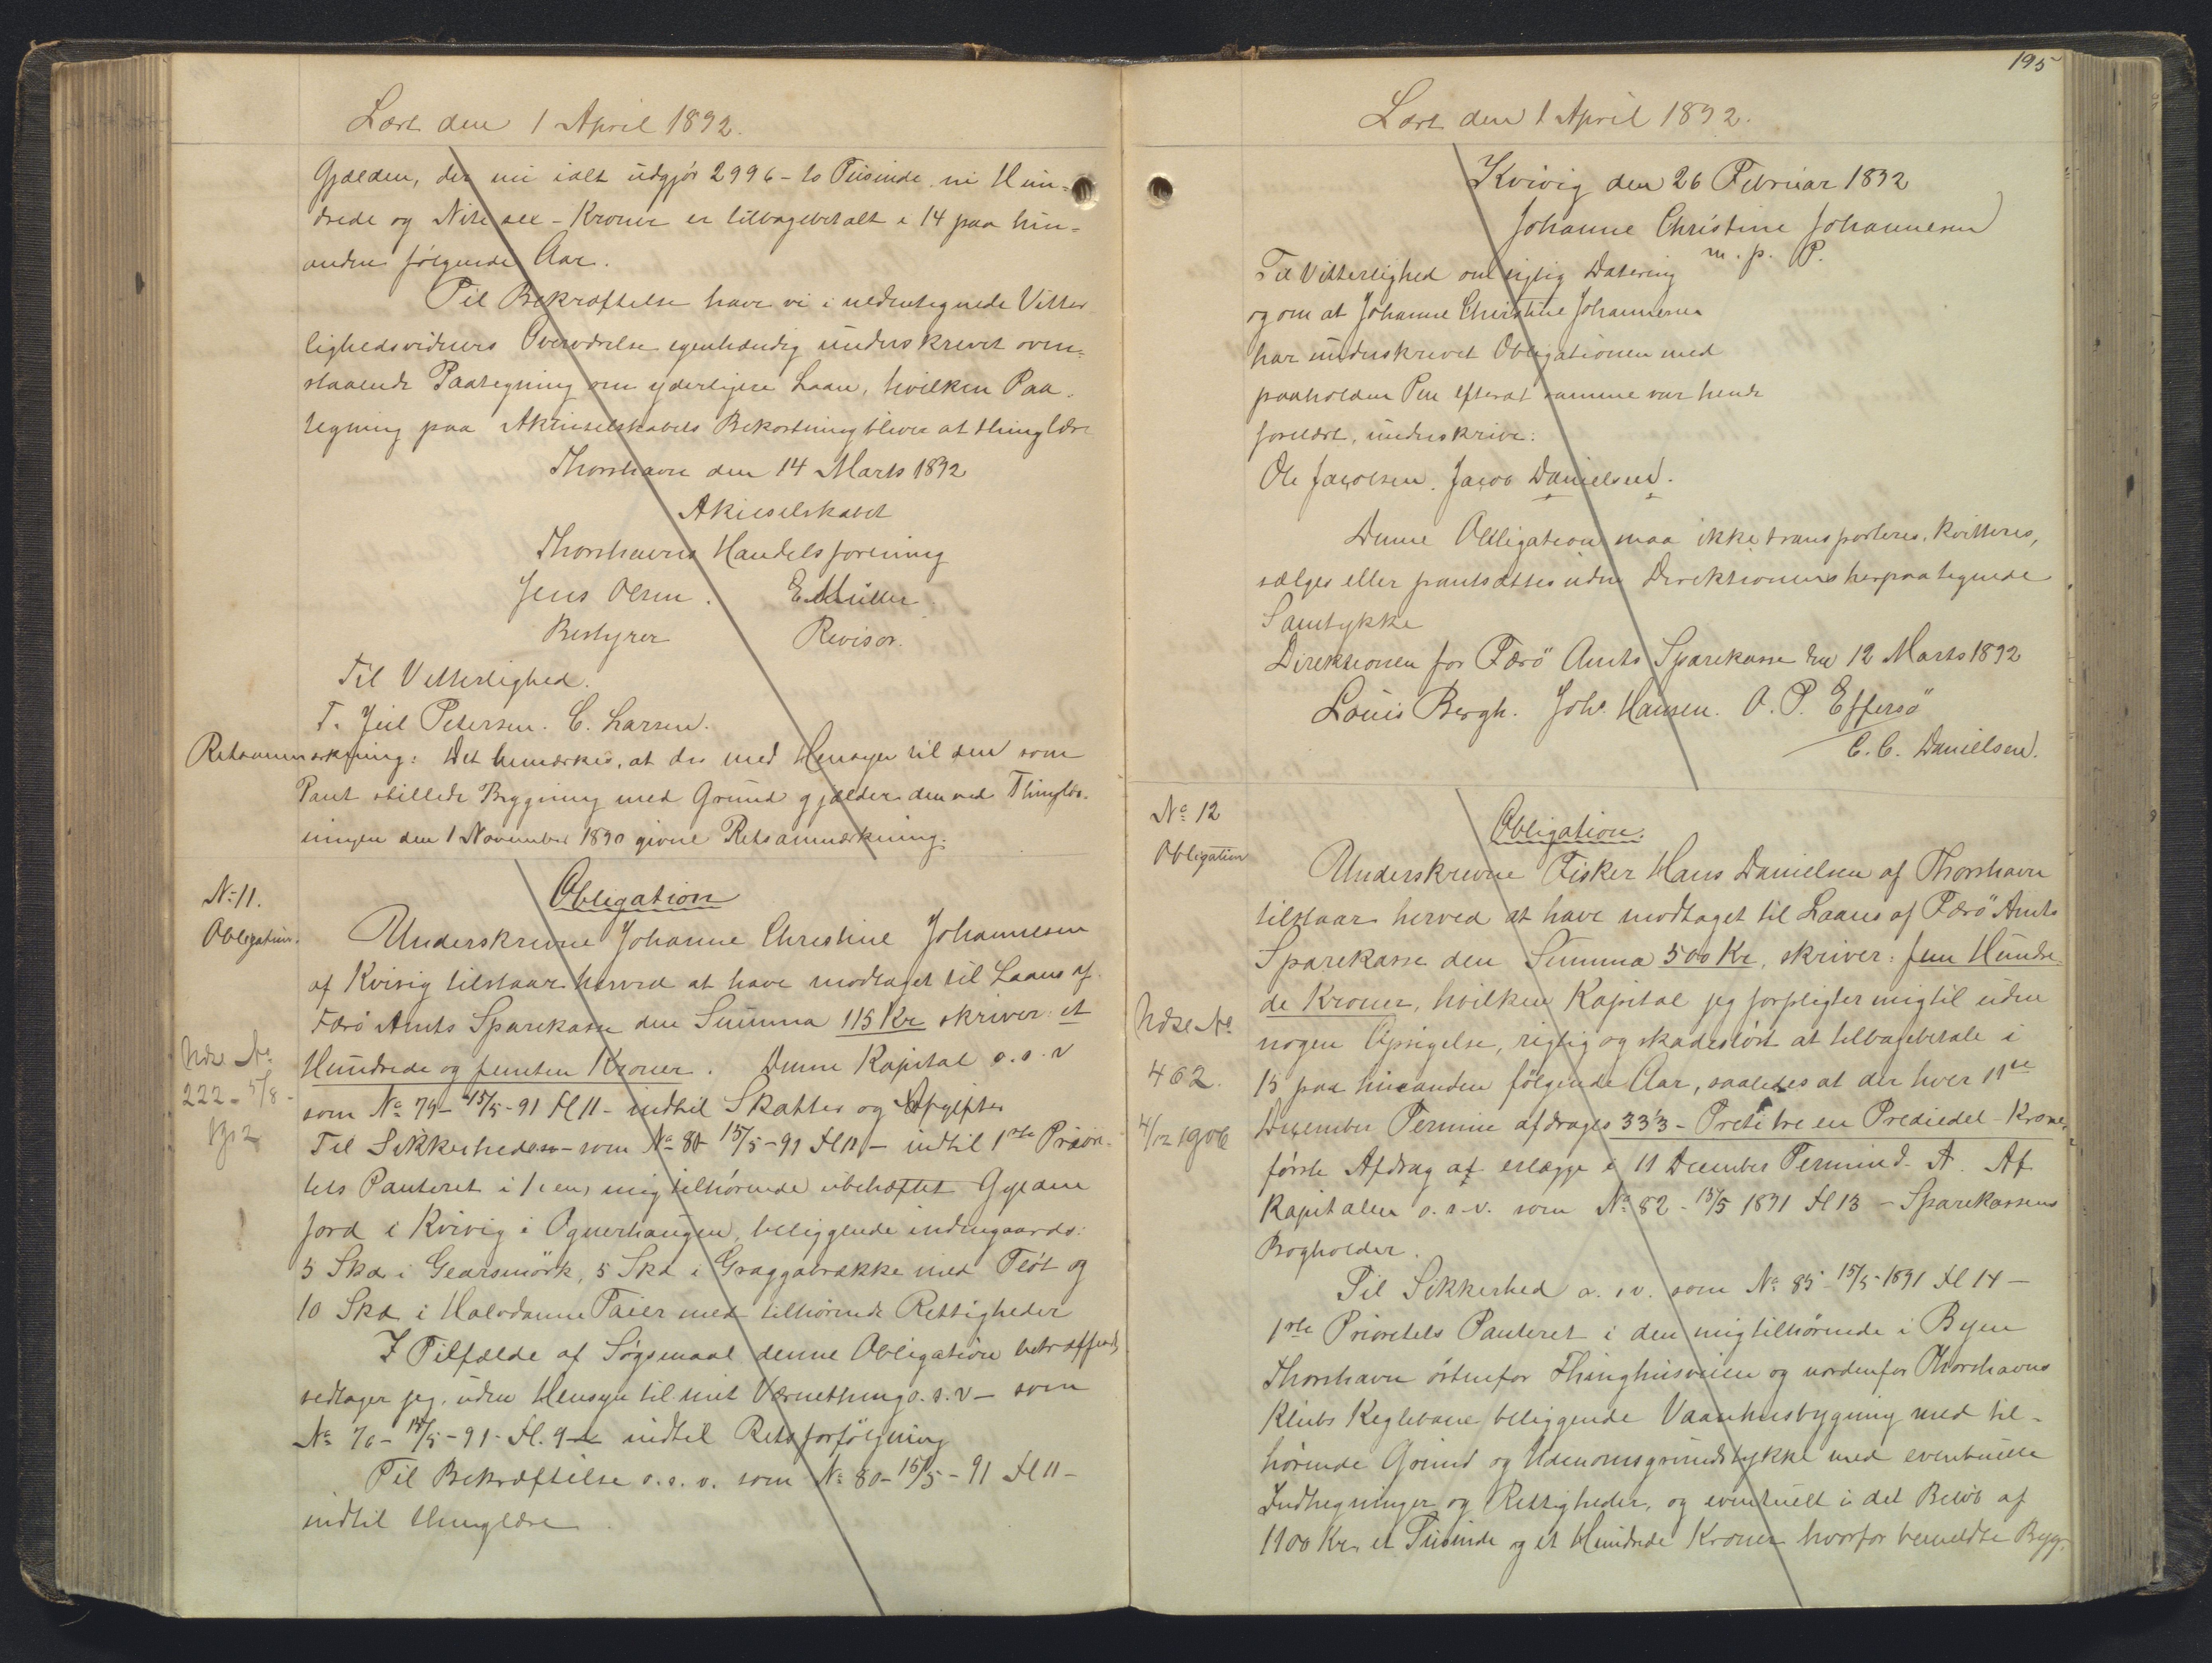 Læst den 1 April 1892.
Gjælden, der nu ialt udgjør 2996 - to Tusinde ni Hun-
drede og Niti sex - Kroner er tilbagebetalt i 14 paa hin-
anden følgende Aar.
Til Bekræftelse have vi i undertegnede Vitter
lighedsvidners Overværelse egenhændig underskrevet oven-
staaende Paategning om yderligere Laan, hvilken Paa-
tegning paa Aktieselskabets Bekostning bliver at thinglæse
Thorshavn den 14 Marts 1892
Aktieselskabet
Thorshavns Handelsforening
Jens Olsen. E Müller.
Bestyrer Revisor.
Til Vitterlighed.
T. Juil Petersen. C. Larsen.
Retsanmærkning: Det bemærkes, at der med Hensyn til den som
Pant stillede Bygning med Grund gjælder den ved Thinglæs-
ningen den 1 November 1890 givne Retsanmærkning.
No 11.
Obligation.
Obligation
Underskrevne Johanne Christine Johannesen
af Kvivig tilstaar herved at have modtaget til Laans af
Færö Amts Sparekasse den Summa 115 Kr skriver: et
Hundrede og femten Kroner. Denne Kapital o.s.v
222 - 5/8 -
som No 79 - 15/5 - 91 Fl 11 - indtil Skatter og Afgifter
Til Sikkerhed - som No 80 15/5 - 91 Fl 11 - indtil 1ste Priori-
tets Panteret i 1 en, mig tilhørende ubehæftet Gylden
Jord i Kvivig i Ognerhaugen, beliggende indengaards:
5 Skd i Gearsmörk, 5 Skd i Graggabrække med Flöt og
10 Skd i Halvdanne Taier med tilhørende Rettigheder
I Tilfælde af Søgsmaal denne Obligation betræffende
vedtager jeg, uden Hensyn til mit Værnething o.s.v - som
No 70 - 15/5 - 91 - Fl. 9 - indtil Retsforfølgning
Til Bekræftelse o.s.v. som No 80 - 15/5 - 91 Fl 11 -
indtil thinglæse
195
Læst den 1 April 1892.
Kvivig den 26 Februar 1892
Johanne Christine Johannesen
m. p. P.
Til Vitterlighed om rigtig Datering
og om at Johanne Christine Johannesen
har underskrevet Obligationen med
paaholden Pen efterat samme var hende
forelæst, underskrive:
Ole Jacobsen. Jacob Danielsen.
Denne Obligation maa ikke transporteres, kvitteres,
sælges eller pantsættes uden Direktionens herpaa tegnede
Samtykke
Direktionen for Færö Amts Sparekasse den 12 Marts 1892
Louis Bergh. Johs. Hansen. O. P. Effersö
C. C. Danielsen.
No 12
Obligation
Obligation.
Underskrevne Fisker Hans Danielsen af Thorshavn
tilstaar herved at have modtaget til Laans af Færö Amts
Sparekasse den Summa 500 Kr, skriver: fem Hundre
de Kroner, hvilken Kapital jeg forpligter mig til uden
nogen Opsigelse, rigtig og skadesløst at tilbagebetale i
462.
15 paa hinanden følgende Aar, saaledes at der hver 11te
4/12 1906
December Termin afdrages 33⅓ - Treti tre en Trediedel - Kroner
første Afdrag at erlægge i 11 December Termin d. A. Af
Kapitalen o.s.v. som No 82 - 15/5 1891 Fl 13 - Sparekassens
Bogholder.
Til Sikkerhed o.s.v. som No 85 - 15/5 - 1891 Fl 14 -
1ste Prioritets Panteret i den mig tilhørende i Byen
Thorshavn østenfor Thinghusveien og nordenfor Thorshavns
Klubs Keglebane beliggende Vaaningshusbygning med til-
hørende Grund og Udenomsgrundstykke med eventuelle
Indhegninger og Rettigheder, og eventuelt i det Beløb af
1100 Kr et Tusinde og et Hundrede Kroner hvorfor bemeldte Byg-